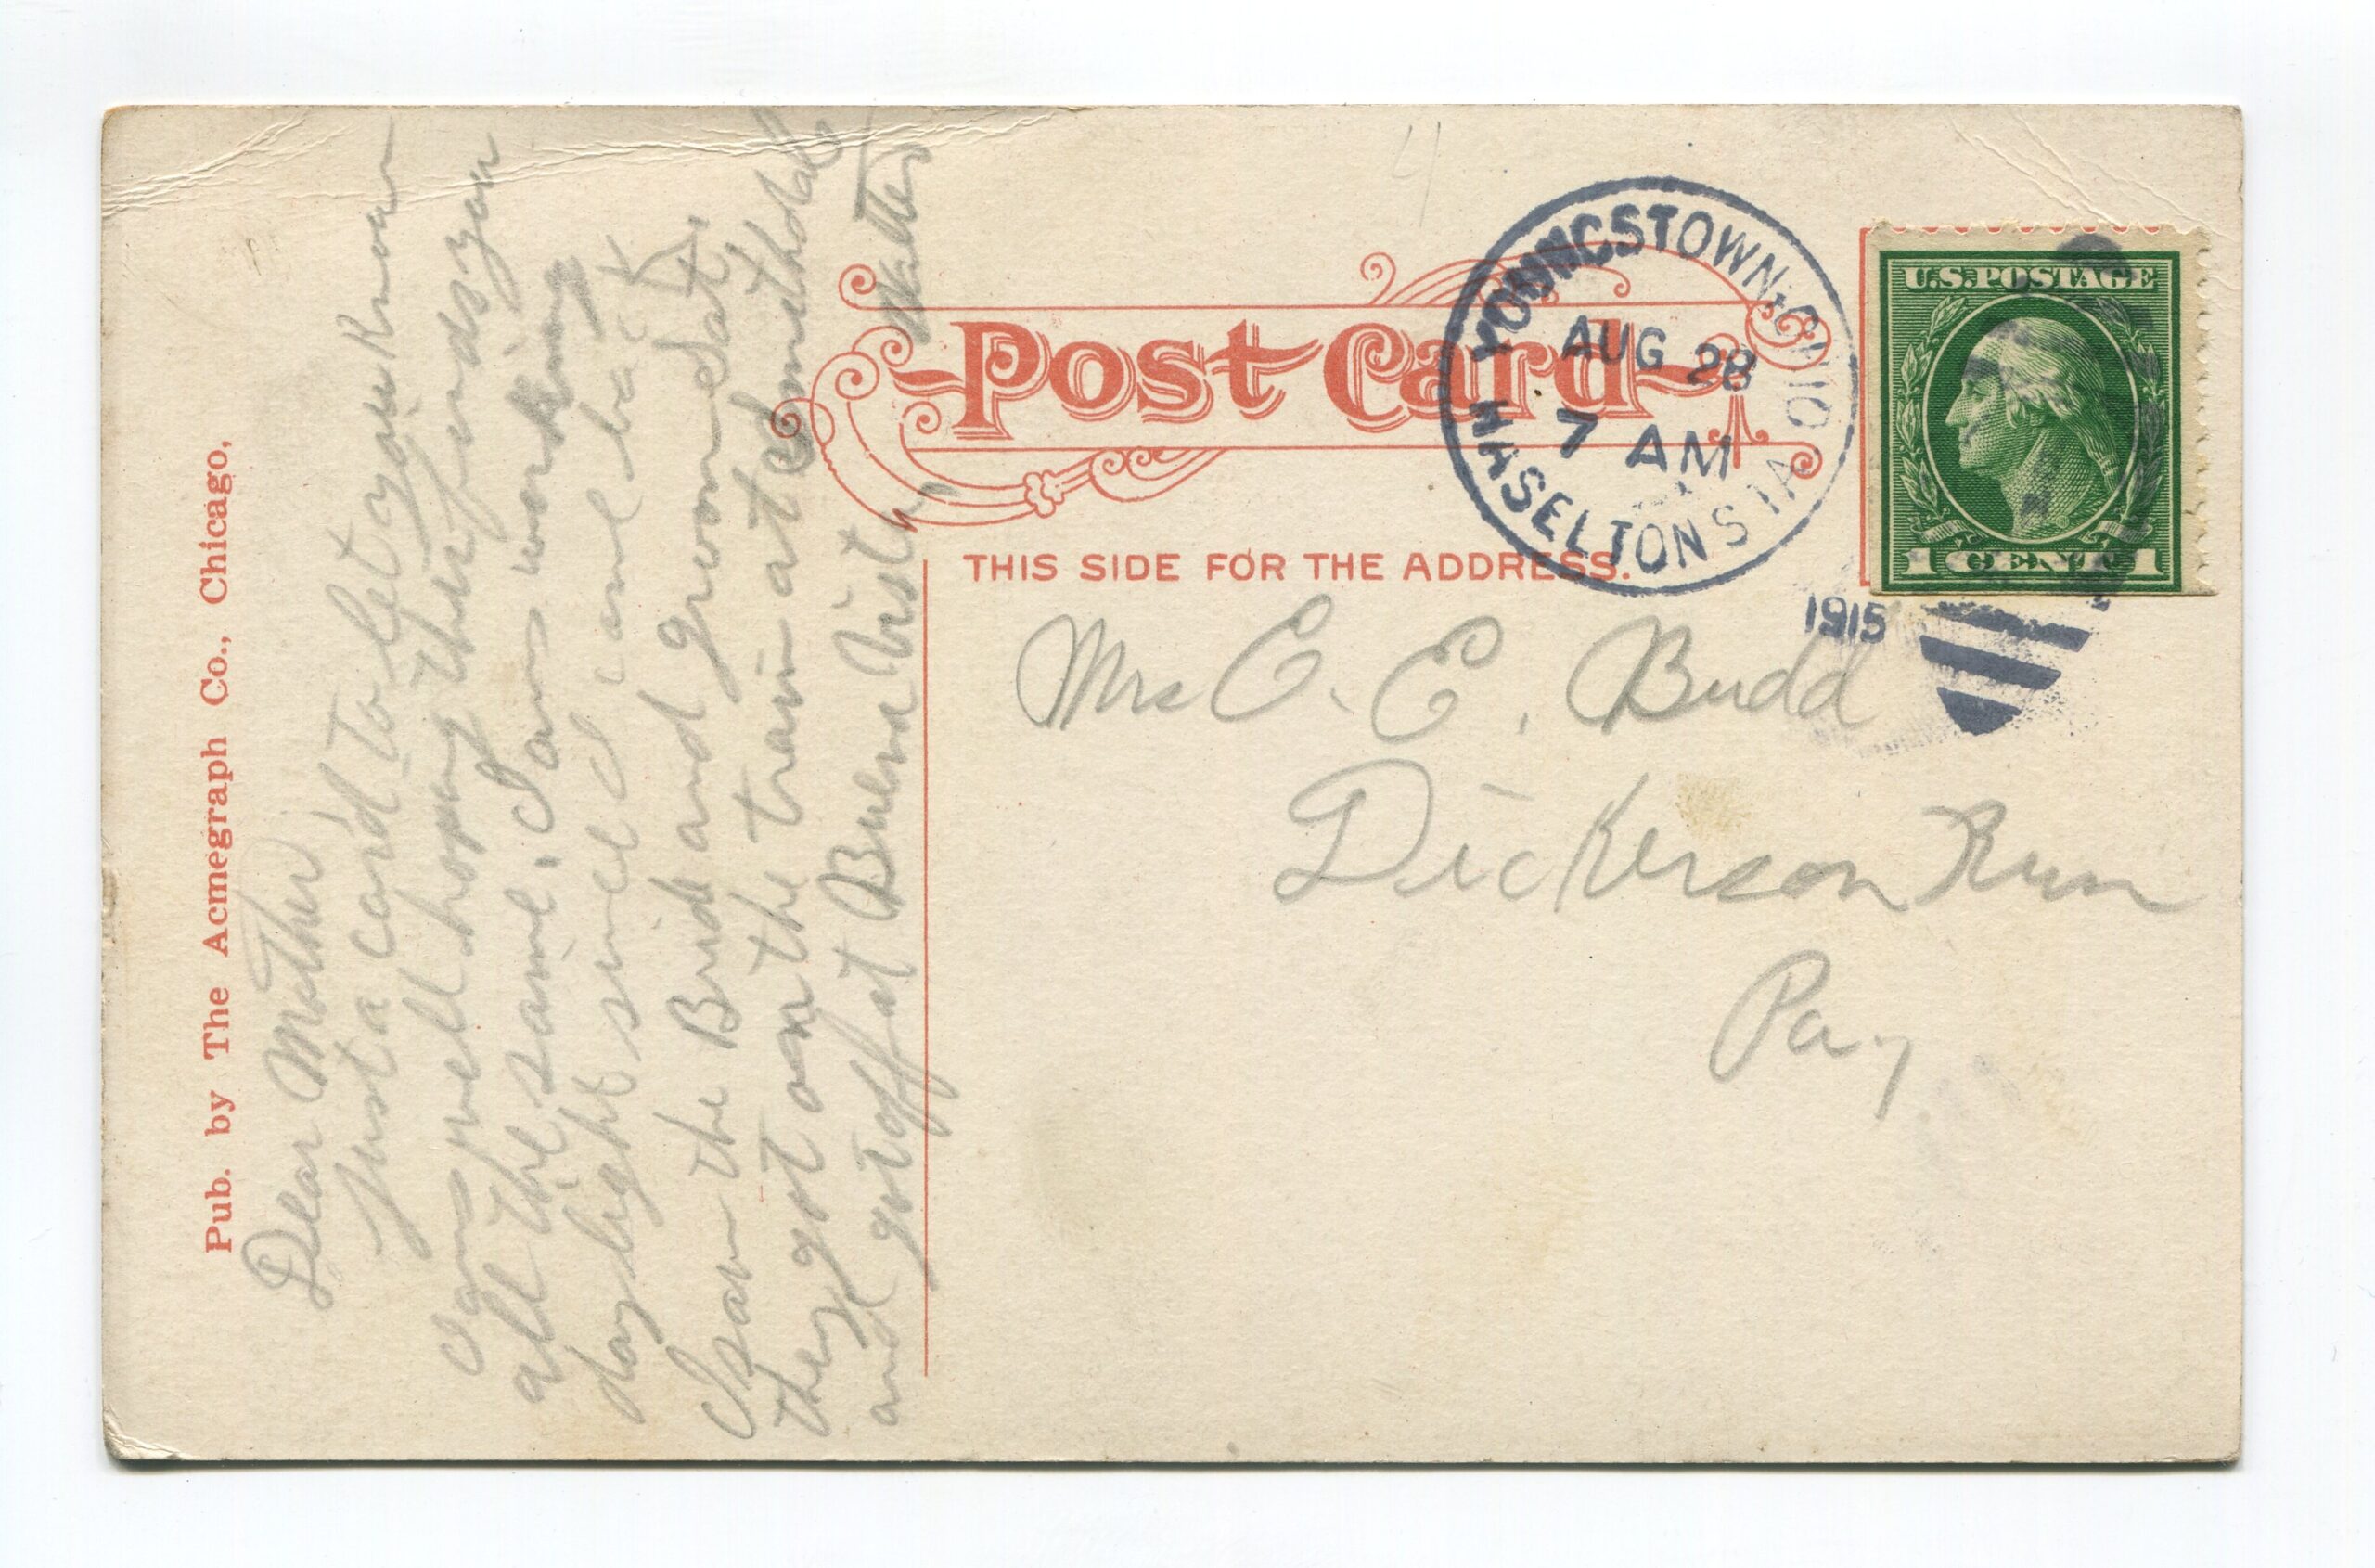 Pub. by The Acmegraph Co., Chicago,
Dear Mother,
Just a card to let you know
I am well hoping this finds you
all the same. I am working
daylight since I came back
I saw the Brid and groom Sat,
they got on the train at Smithdale
and got off at Buena Vista, Walter
Post Card
THIS SIDE FOR THE ADDRESS.
YOUNGSTOWN, OHIO
AUG 28
7 AM
HASELTON STA
1915
U.S. POSTAGE
1 CENT 1
Mrs E. E. Budd
Dickerson Run
Pa.,